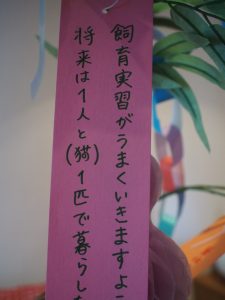 飼育実習がうまくいきますよう
将来は1人と(猫)1匹で暮らした